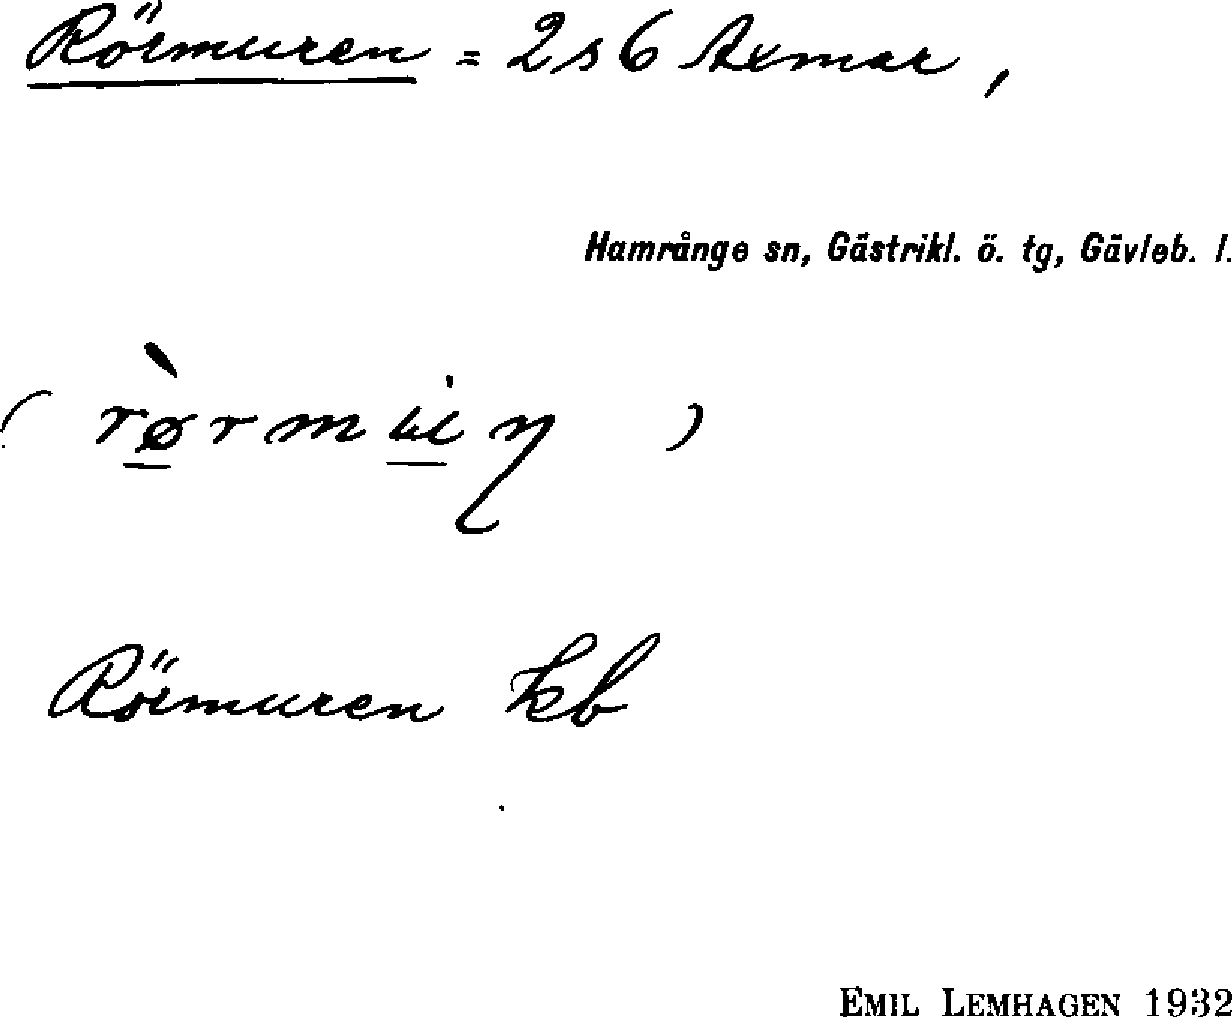 Rörmuren = 2s6 Axmar,
Hamrånge sn, Gästrikl. ö. tg, Gävleb. l.
Rörmuren kb
EMIL LEMHAGEN 1932